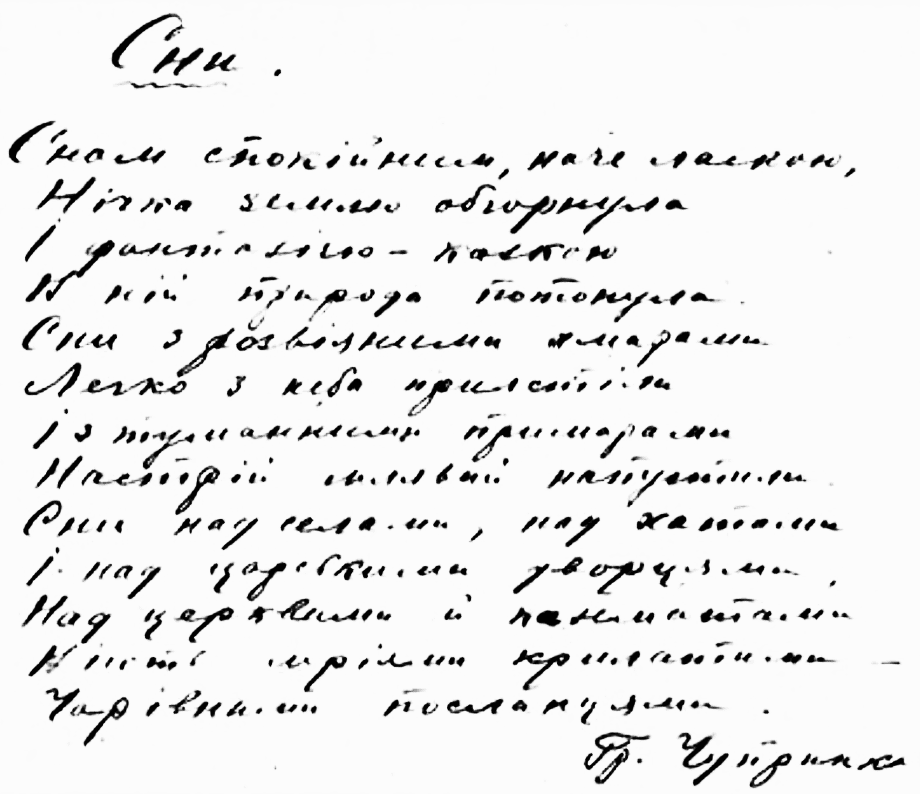 Сни.
Сном спокійним, наче ласкою,
Нічка землю обгорнула
І фантазією – казкою
В ній природа потонула.
Сни з розвіяними хмарами
Легко з неба прилетіли
І з туманними примарами
Настрій млявий напустили.
Сни над селами, над хатами
І над царськими дворцями,
Над церквами й
мріями крилатими –
Чарівними посланцями.
Гр. Чупринка